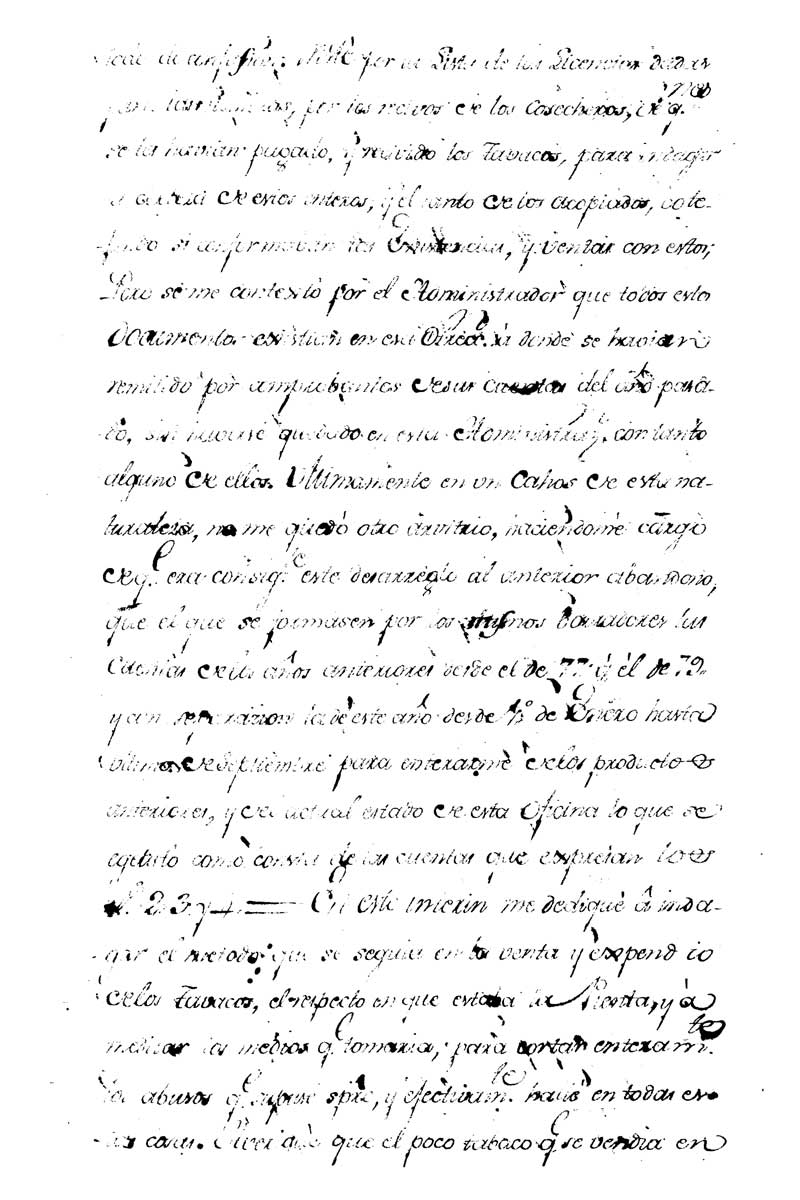 por la Lista de las Licencias dadas
para las por los recivos de los Cosecheros, en q.e no
se les havian pagado, y recivido los Tavacos, para indagar
de estos enteros, y el tanto de los acopiados, cote-
jando si conformaban las Existencias, y ventas con estos;
Pero se me contextó por el Administrador que todos estos
Documentos existian en esa Direcc.n á donde se havian
remitido por comprobantes de sus cuentas del año pasa-
do, sin haverse quedado en esta Administraz.n con tanto
alguno de ellos. Ultimamente en un Cahos de esta na-
turaleza, no me quedó otro arvitrio, haciendome cargo
de q.e era consig.te este desarreglo al anterior abandono,
que el que se formasen por los mismos las
Cuentas de los años anteriores desde el de 77 á el de 79.
y con separazion la de este año desde 1.º de Enero hasta
ultimos de Septiembre para enterarme de los productos
anteriores, y del actual estado de esta Oficina lo que se
egecutó como consta de las cuentas que expresan los
N.s 2. 3. y 4. = En este interin me dediqué á inda-
gar el metodo que se seguia en la venta y expendio
de los Tavacos, el respecto en que estaba la Renta, y á
meditar los medios q.e tomaria, para cortar enteram.te
los abusos q.e supuse spre, y efectivam.te havia en todas es-
tas cosas. que el poco tabaco q.e se vendia en